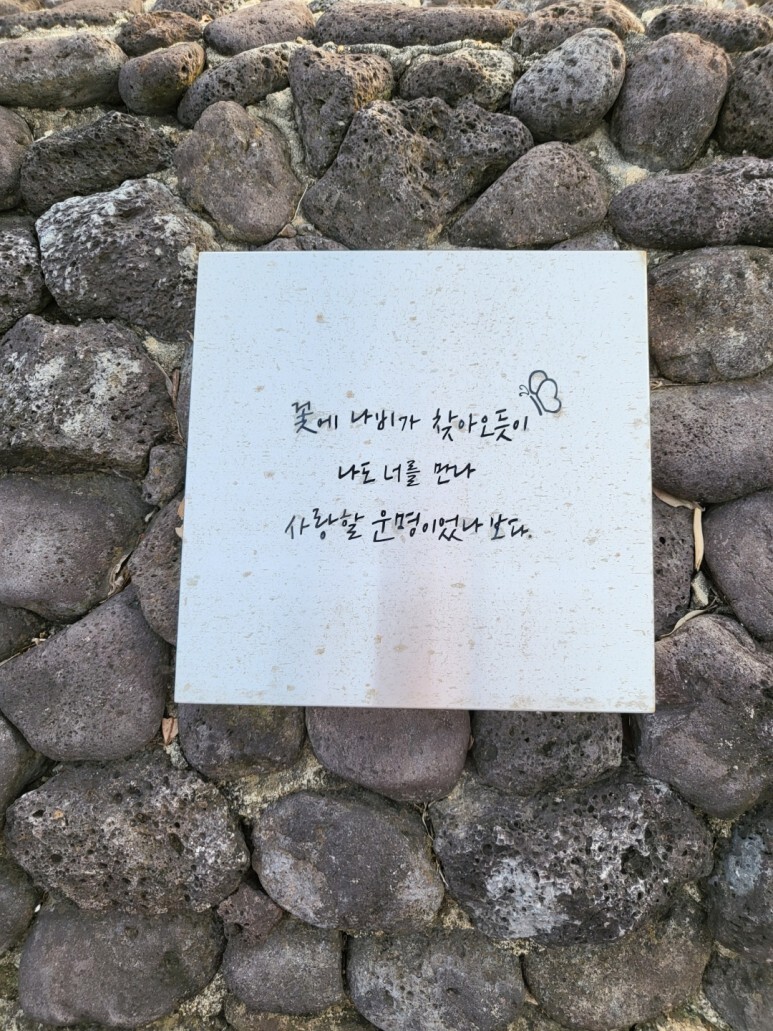 꽃에 나비가 찾아오듯이
나도 너를 만나
사랑할 운명이었나 보다.